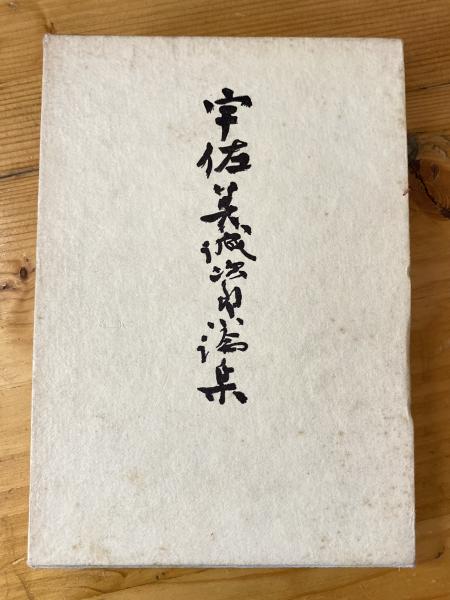 宇佐美誠次郎論集